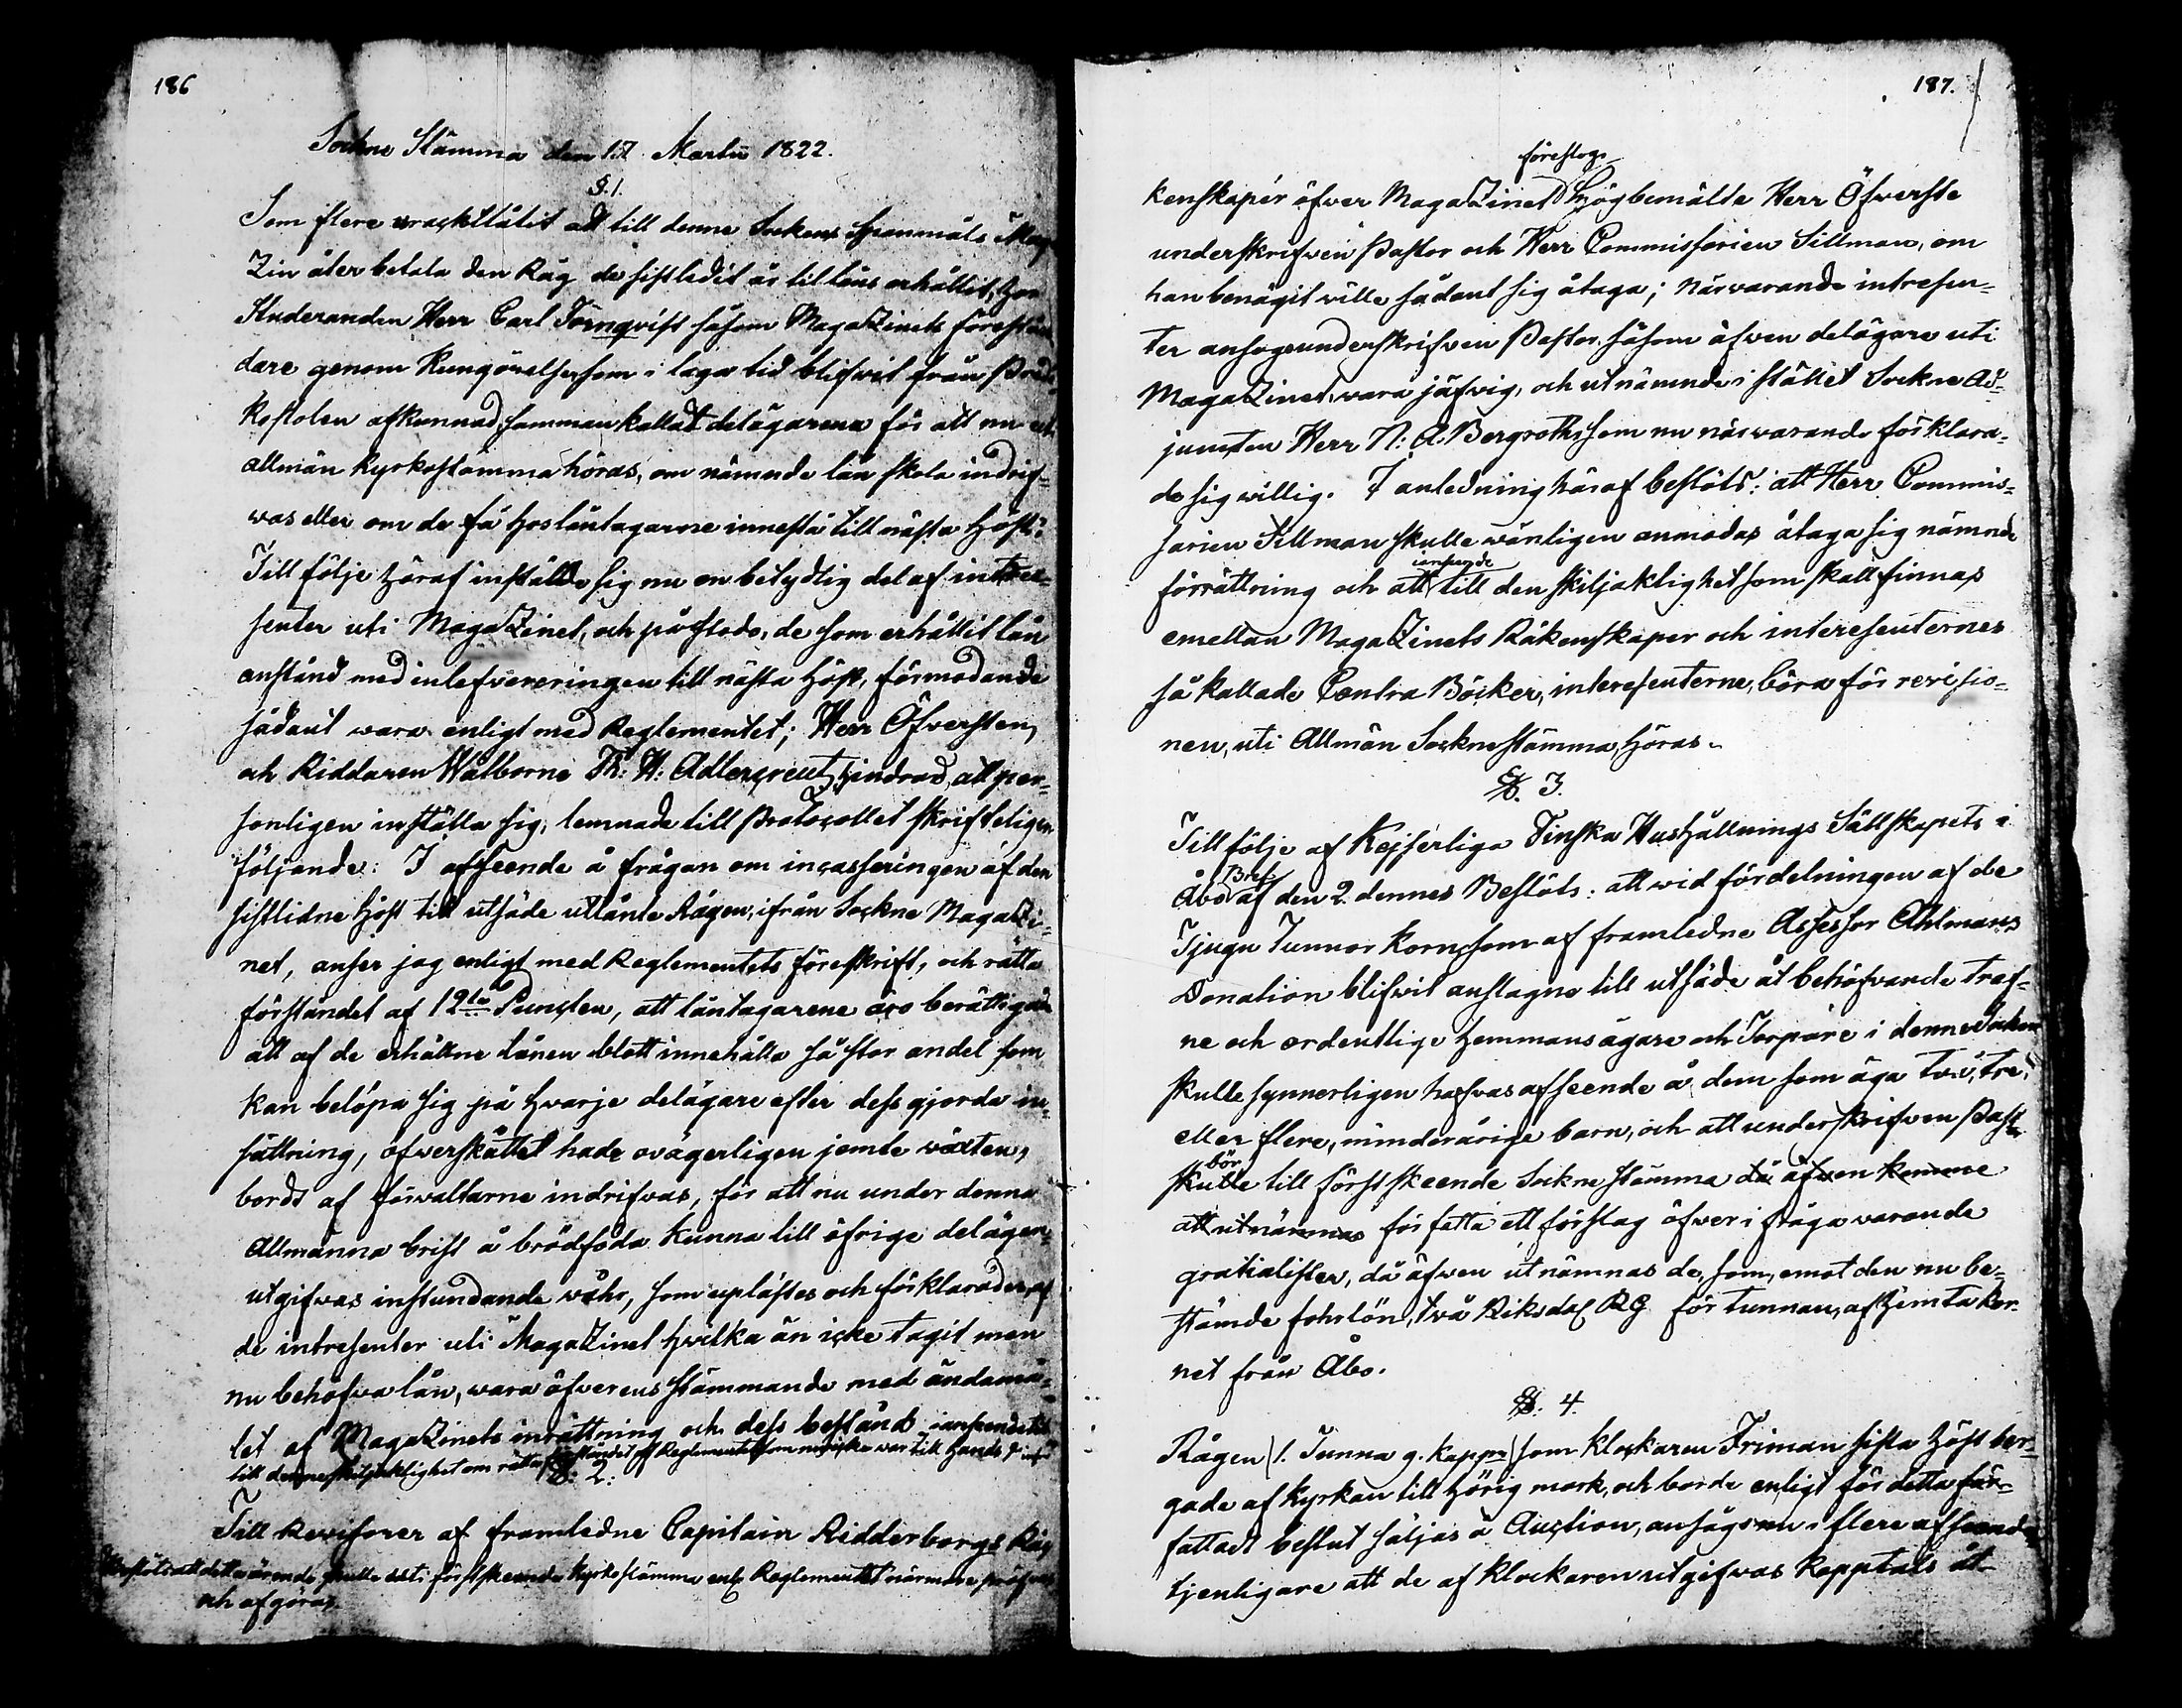 186
Sockne Stämma den 17 Martii 1822.
§. 1.
Som flere uracktlåtit att till denne Sockens Spanmåls Maga
Zin åter betala den Råg de sistledit år till låns erhållit, har
Studeranden Herr Carl Törnqvist såsom MagaZinets förestån
dare genom Kungörelser som i laga tid blifwit från Predi
kostolen afkunnad, sammankallat delägarena för att nu uti
allmän Kyrkostämma höras, om nämnde lån skola indrif-
was eller om de få hos låntagarne innestå till nästa Höst.
Till följe häraf inställde sig nu en betydlig del af intres-
senter uti MagaZinet, och påstodo, de som erhållit lån
anstånd med inlefvereringen till nästa Höst, förmodande
sådant wara enligt med Reglementet; Herr Öfwersten
och Riddaren Wälborne Th: H: Adlercreutz, hindrad, att per-
sonligen inställa sig, lemnade till Protocollet skrifteligen
följande: I afseende å frågan om incasseringen af den
sistlidne Höst till utsäde utlånte Rågen, ifrån Sockne MagaZi-
net, anser jag enligt med Reglementets föreskrift, och rätta
förståndet af 12te Puncten, att låntagarene äro berättigade
att af de erhållne lånen blott innehålla så stor andel som
kan belöpa sig på hwarje delägare efter dess gjorda in-
sättning, öfwerskåttet hade ovägerligen jemte wäxten,
bordt af förwaltarne indrifvas, för att nu under denna
Allmänna brist å brödföda kunna till öfrige delägare
utgifwas instundande wåhr, som uplästes och förklarades af
de intresenter uti MagaZinet hwilka än icke tagit men
nu behöfwa lån, wara öfverensstämmande med ändamå-
let af MagaZinets inrättning och dess bestånd, i anseende
till denne skiljaktlighet om rätta förståndet af Reglementet som nu icke war till hands
§. 2:
Till Revisorer af framledne Capitain Ridderborgs Räk
Beslöts att detta ärende skulle uti först skeende Kyrkostämma enl. Reglementet närmare pröfwas
och afgöras
187.
föreslogs
kenskaper öfver MagaZinet Högbemälte Herr Öfwerste
underskrifven Pastor och Herr Commissarien Tillman, om
han benägit wille sådant sig åtaga; Närvarande intresen-
ter ansågo underskrifven Pastor såsom äfwen delägare uti
MagaZinet, wara jäfvig, och utnämnde i stället Sockne Ad-
juncten Herr N: A. Bergroth, som nu närwarande förklara-
de sig willig. I anledning häraf beslöts: att Herr Commis-
sarien Tillman skulle wänligen anmodas åtaga sig nämnde
i anseende
förrättning och att till den skiljaktlighet som skall finnas
emellan MagaZinets Räkenskaper och interesenternes
så kallade Contra Böcker, interesenterne, böra för revisio-
nen, uti Allmän Sockne stämma, höras.
§. 3.
Till följe af Kejserliga Finska Hushållnings Sällskapets i
Bref
Åbo af den 2 dennes Beslöts: att wid fördelningen af de
Tjugu Tunnor Korn, som af framledne Assessor Ahlmans
Donation blifwit anslagne till utsäde åt behöfvande traf-
ne och ordentlige Hemmansägare och Torpare i denne Socken
skulle synnerligen hafvas afseende å dem som äga två, tre,
eller flere, minderårige barn, och att underskrifven Pastor
bör
skulle till först skeende Sockne stämma då äfwen komme
att utnämnas författa ett förslag öfver i fråga warande
gratialister, då äfwen utnämnas de, som, emot den nu be-
stämde forlön, två Riksdal RG för tunnan, afhämta kor-
net från Åbo.
§. 4.
Rågen (1. Tunna 9. kappr) som klockaren Friman sista höst ber-
gade af Kyrkan till hörig mark, och borde enligt för detta för-
fattadt beslut säljas å Auction, ansågs nu i flere afseende
tjenligare att de af klockaren utgifwas kapptals åt